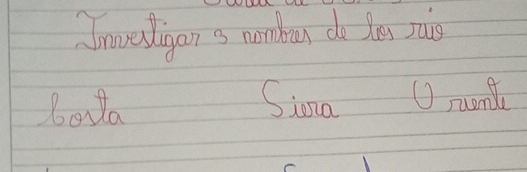 Investigar 3 nombres de los rios
Costa Siera Oruente